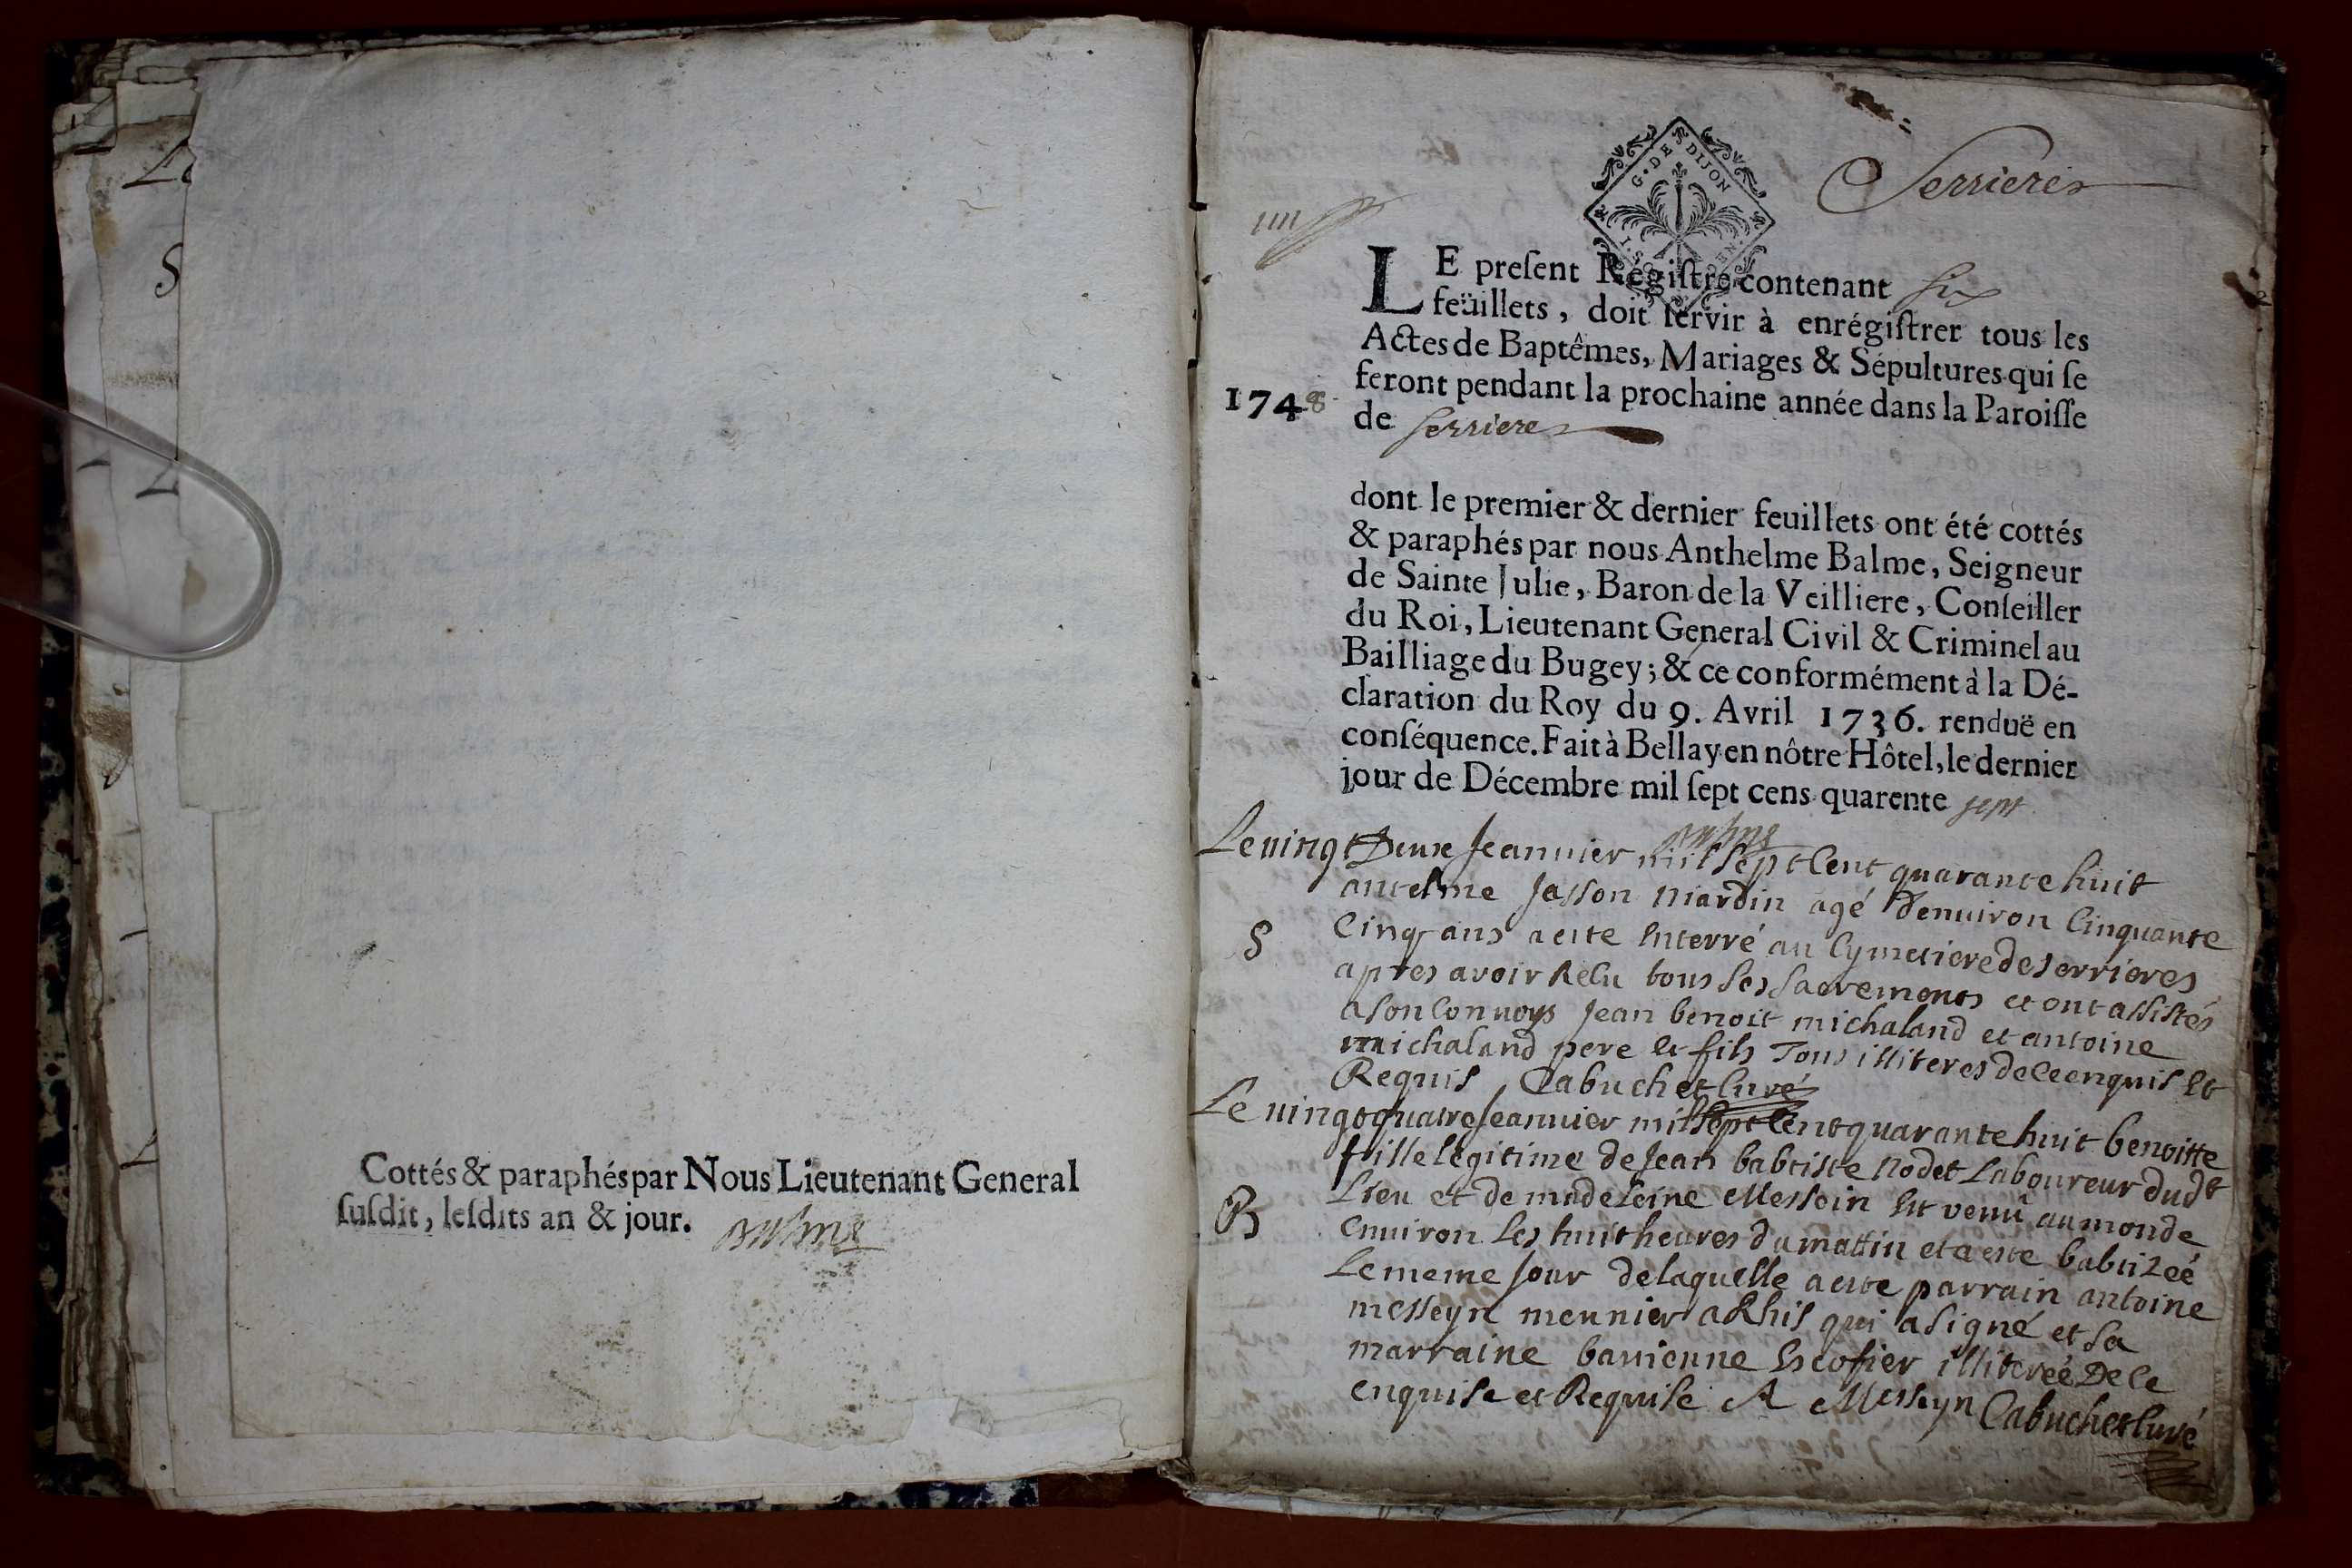 Cottés & paraphés par Nous Lieutenant General
ſuſdit, leſdits an & jour.
Balme
G. DE DIJON
Serrieres
LE preſent Régiſtre contenant six
feüillets, doit ſervir à enrégiſtrer tous les
Actes de Baptêmes, Mariages & Sépultures qui ſe
feront pendant la prochaine année dans la Paroiſſe
1748
de serrieres
dont le premier & dernier feuillets ont été cottés
& paraphés par nous Anthelme Balme, Seigneur
de Sainte Julie, Baron de la Veilliere, Conſeiller
du Roi, Lieutenant General Civil & Criminel au
Bailliage du Bugey; & ce conformément à la Dé-
claration du Roy du 9. Avril 1736. renduë en
conſéquence. Fait à Bellay en nôtre Hôtel, le dernier
jour de Décembre mil ſept cens quarente sept
Balme
Le vingt Deux Jeanvier mil sept Cent quarante huit
antelme Jasson mardin agé Denviron Cinquante
S Cinq ans a esté Enterré au Cymetiere de serrieres
apres avoir Recu tous les sacrements et ont assistés
a son Convoys Jean benoit michaland et antoine
michaland pere et fils Tous illiteres de ce enquis Et
Requis Cabuchet Curé
Le vingt quatre Jeanvier mil sept Cent quarante huit benoitte
fille legitime de Jean babtiste Nodet Laboureur dud^t
Lieu et de madeleine Messein Est venu au monde
B environ Les huit heures du mattin et a este babtizeé
Le meme Jour de laquelle a este parrain antoine
messeyn meunier a Rhis qui a signé et sa
marraine Escofier illitereé De Ce
enquise et Requise A Messeyn Cabuchet Curé